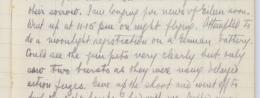 their sorrow. I am longing for news of Eileen soon.
Went up at 11.15 pm on night flying. Attempted to
do a moonlight registration on a German battery.
Could see the gun pits very clearly but only
saw two bursts as they were using delayed
action fuzes. Gave up the shoot and went off to